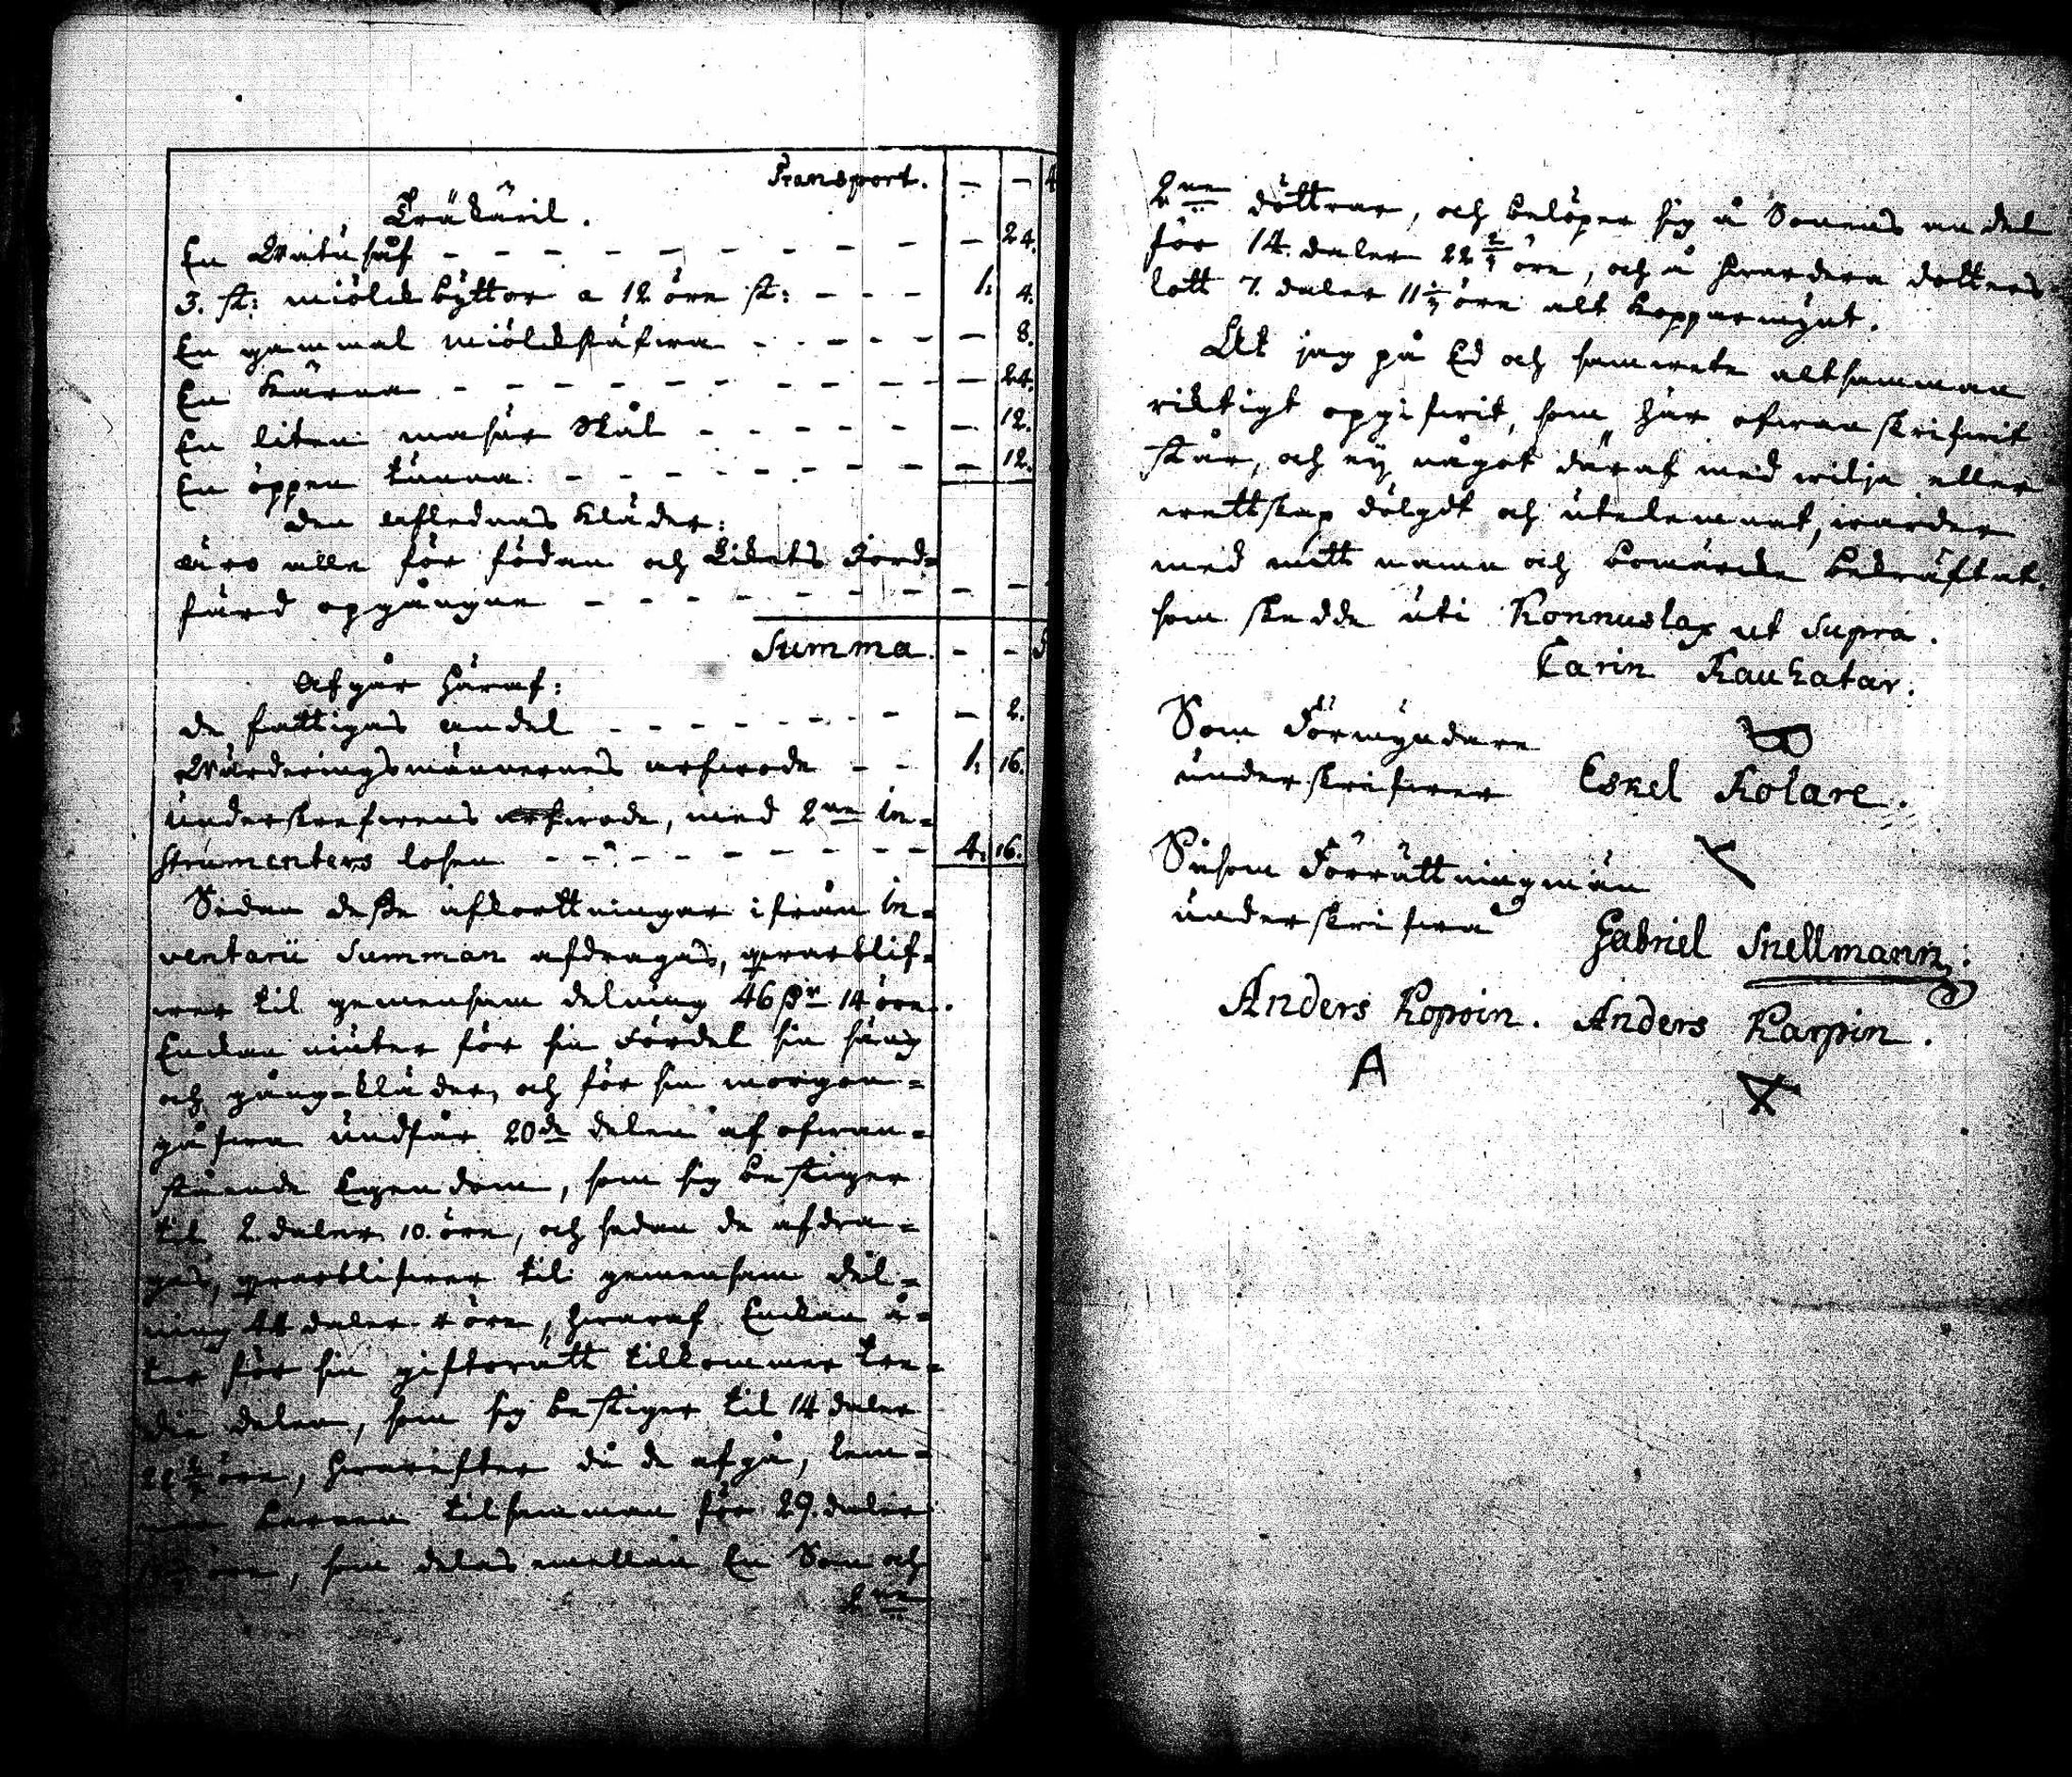 Transport. — — 4
Träkäril.
En Watusåf — — 24.
3. st: miölckbyttor a 12 öre st: — 1. 4.
En gammal miölckstäfwa — — 8.
En Kärna — — 24.
En liten masur Skål — — 12.
En öppen tunna — — 12.
Den aflednas Kläder:
äro alle för födan och Likets Jord=
färd opgångne — — —
Summa. — — 5
Afgår häraf:
de fattigas andel — — 2.
Wärderingsmännernes arfwode — 1. 16.
Underskrefwens arfwode, med 2ne In=
strumenters lösen — — 4. 16.
Sedan desse afkortningar ifrån In=
ventarii Summan afdragas, qwarblif=
wer til gemensam delning 46 Dr 14 öre.
Enckan niuter för sin Fördel sin säng
och gång-kläder, och för sin morgon=
gåfwa undfår 20de delen af ofwan=
stående Egendom, som sig bestiger
til 2. daler 10. öre, och sedan de afdra=
gas, qwarblifwer til gemensam del=
ning 44 daler 4 öre, hwaraf Enckan å=
ter för sin giftorätt tilkommer tre=
die delen, som sig bestiger til 14 daler
22 2/3 öre, hwarefter då de afgå, lem=
nas barnen tilsamman för 29. daler
öre, som delas emellan En Son och
2ne
2ne döttrar, och belöper sig å Sonens andel
för 14. daler 22 2/3 öre, och å hwardera dotters
lott 7. daler 11 1/3 öre alt Kopparmynt.
At jag på Ed och samwete altsamman
riktigt opgifwit, som här ofwanskrifwit
står, och ey något däraf med wilja eller
wettskap dölgdt och utelemnat, warder
med mitt namn och bomärcke bekräftat,
som skedde uti Konnuslax ut Supra.
Carin Kauhatar.
Som Förmyndare
underskrifwer Eskel Kolare.
Såsom Förrättningmän
underskrifwa Gabriel Snellmann.
Anders Kopoin. Anders Karpin.
A